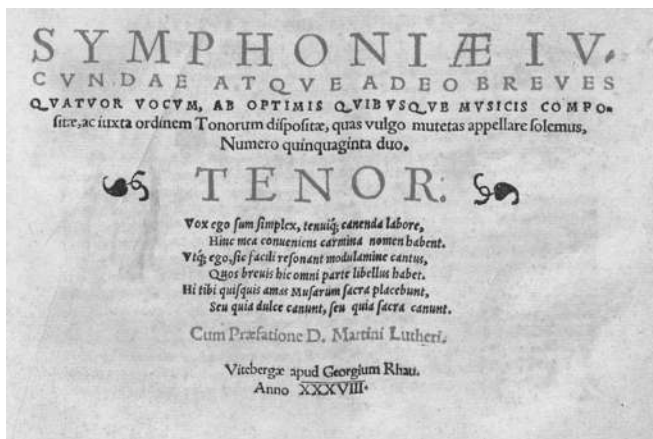 SYMPHONIÆ IV.
CVNDAE ATQVE ADEO BREVES
QVATVOR VOCVM, AB OPTIMIS QVIBVSQVE MVSICIS COMPO-
ſitæ, ac iuxta ordinem Tonorum diſpoſitæ, quas vulgo mutetas appellare ſolemus,
Numero quinquaginta duo.
TENOR:
Vox ego ſum ſimplex, tenuiq́; canenda labore,
Hinc mea conueniens carmina nomen habent.
Vtq́; ego, ſic facili reſonant modulamine cantus,
Quos breuis hic omni parte libellus habet.
Hi tibi quiſquis amas Muſarum ſacra placebunt,
Seu quia dulce canunt, ſeu quia ſacra canunt.
Cum Præfatione D. Martini Lutheri.
Vitebergæ apud Georgium Rhau.
Anno XXXVIII.